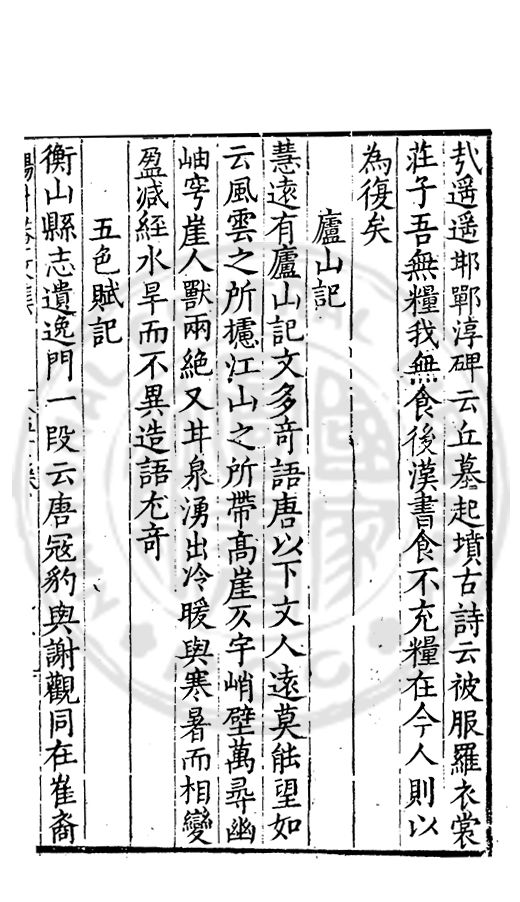 弞遥遥邯鄲淳碑云丘墓起墳古詩云被服羅衣裳
莊子吾無糧我無食後漢書食不充糧在今人則以
為復矣
廬山記
慧遠有廬山記文多奇語唐以下文人遠莫能望如
云風雲之所攄江山之所帶高崖仄宇峭壁萬尋幽
岫穹崖人獸兩絕又井泉湧出冷暖與寒暑而相變
盈减經水旱而不異造語尤奇
五色賦記
衡山縣志遺逸門一段云唐寇豹與謝觀同在崔裔